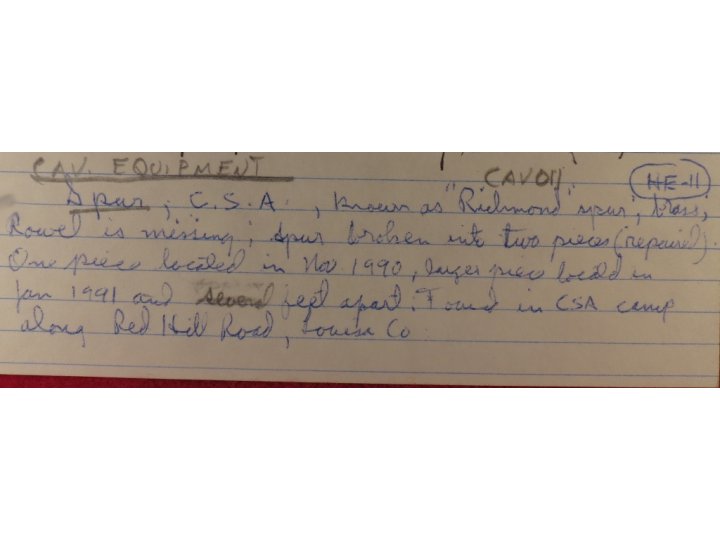 CAV. EQUIPMENT CAV011 HE-11
Spur; C.S.A., known as "Richmond" spur; brass;
Rowel is missing; spur broken into two pieces (repaired).
One piece located in Nov 1990, larger piece located in
Jan 1991 and several feet apart. Found in CSA camp
along Red Hill Road, Louisa Co.